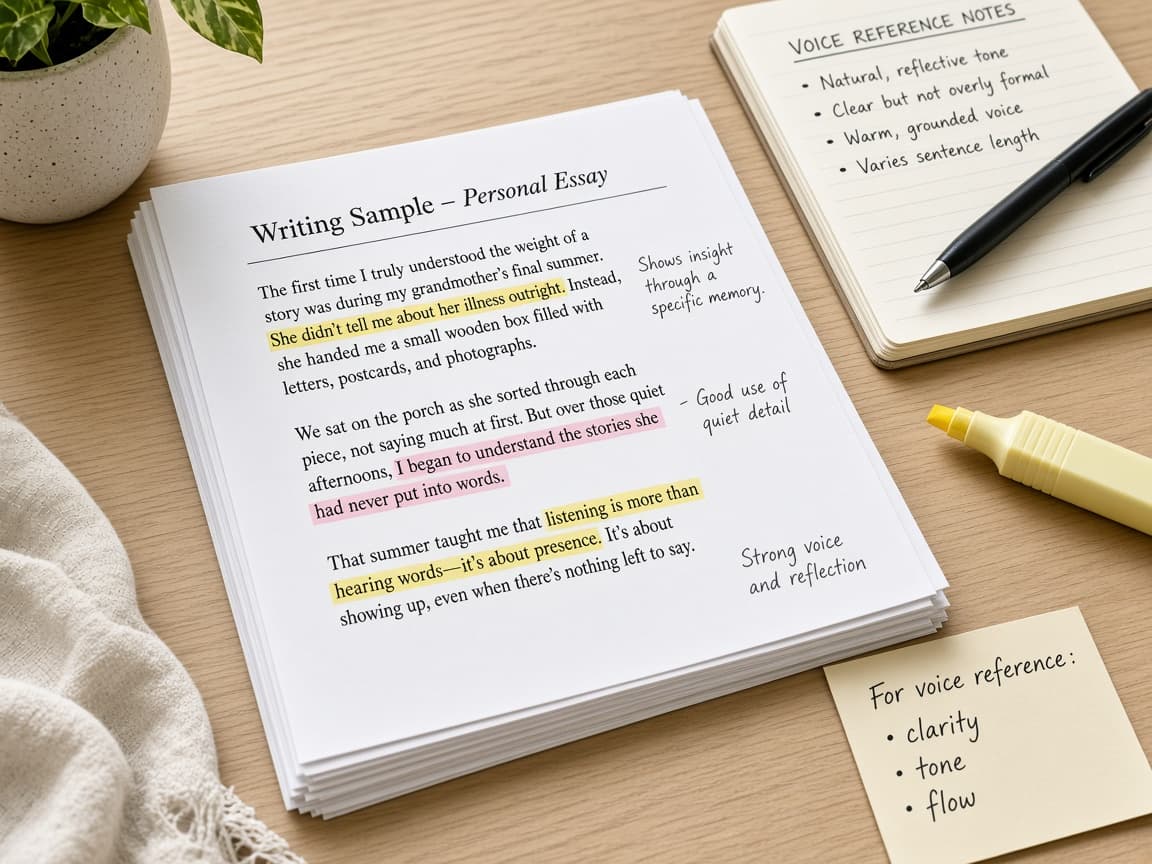 Writing Sample – Personal Essay
The first time I truly understood the weight of a
story was during my grandmother's final summer.
She didn't tell me about her illness outright. Instead,
she handed me a small wooden box filled with
letters, postcards, and photographs.
We sat on the porch as she sorted through each
piece, not saying much at first. But over those quiet
afternoons, I began to understand the stories she
had never put into words.
That summer taught me that listening is more than
hearing words—it's about presence. It's about
showing up, even when there's nothing left to say.
Shows insight
through a
specific memory.
– Good use of
quiet detail
Strong voice
and reflection
VOICE REFERENCE NOTES
• Natural, reflective tone
• Clear but not overly formal
• Warm, grounded voice
• Varies sentence length
For voice reference:
• clarity
• tone
• flow